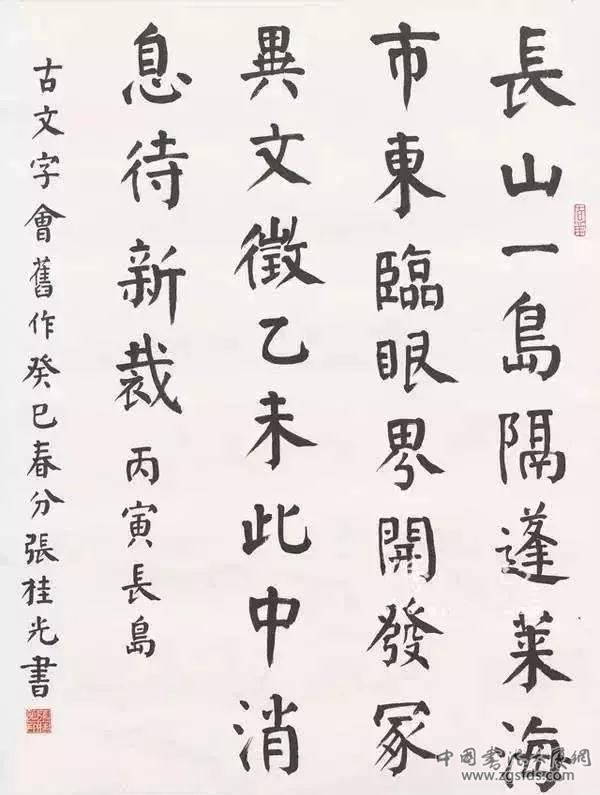 長山一島隔蓬萊海
市東臨眼界開發冢
異文徵乙未此中消
息待新裁 丙寅長島
古文字會舊作癸巳春分張桂光書
中国书法书展網
www.zgsfds.com